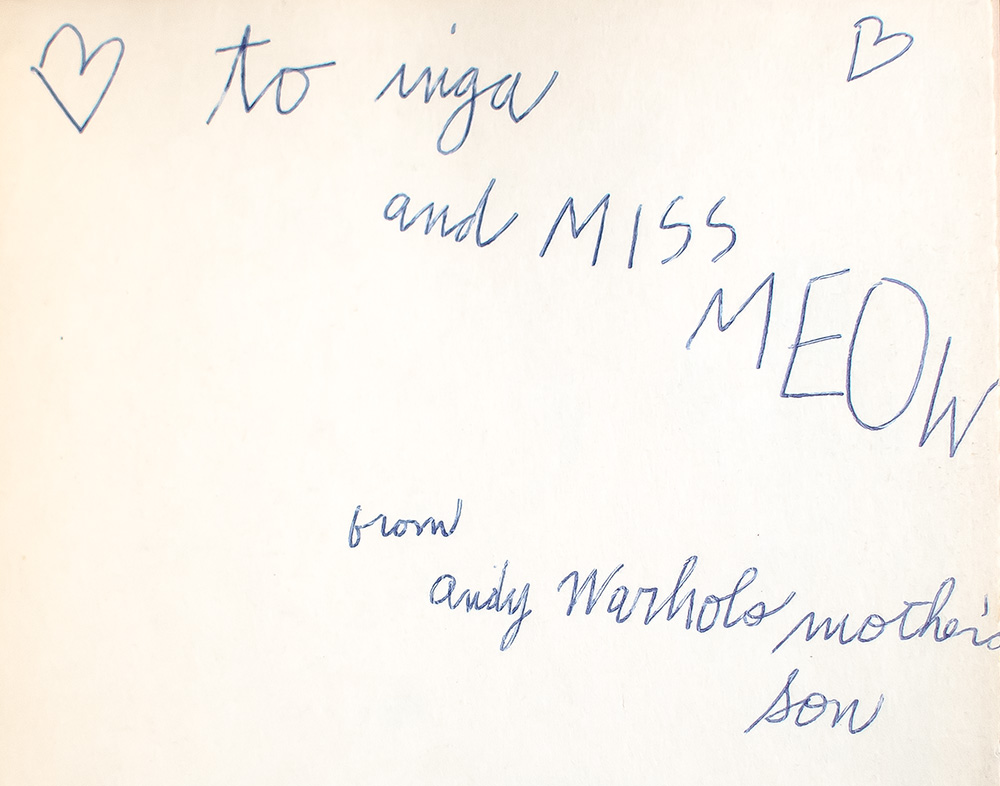 to inga
and MISS
MEOW
from
andy Warhols mother's
son